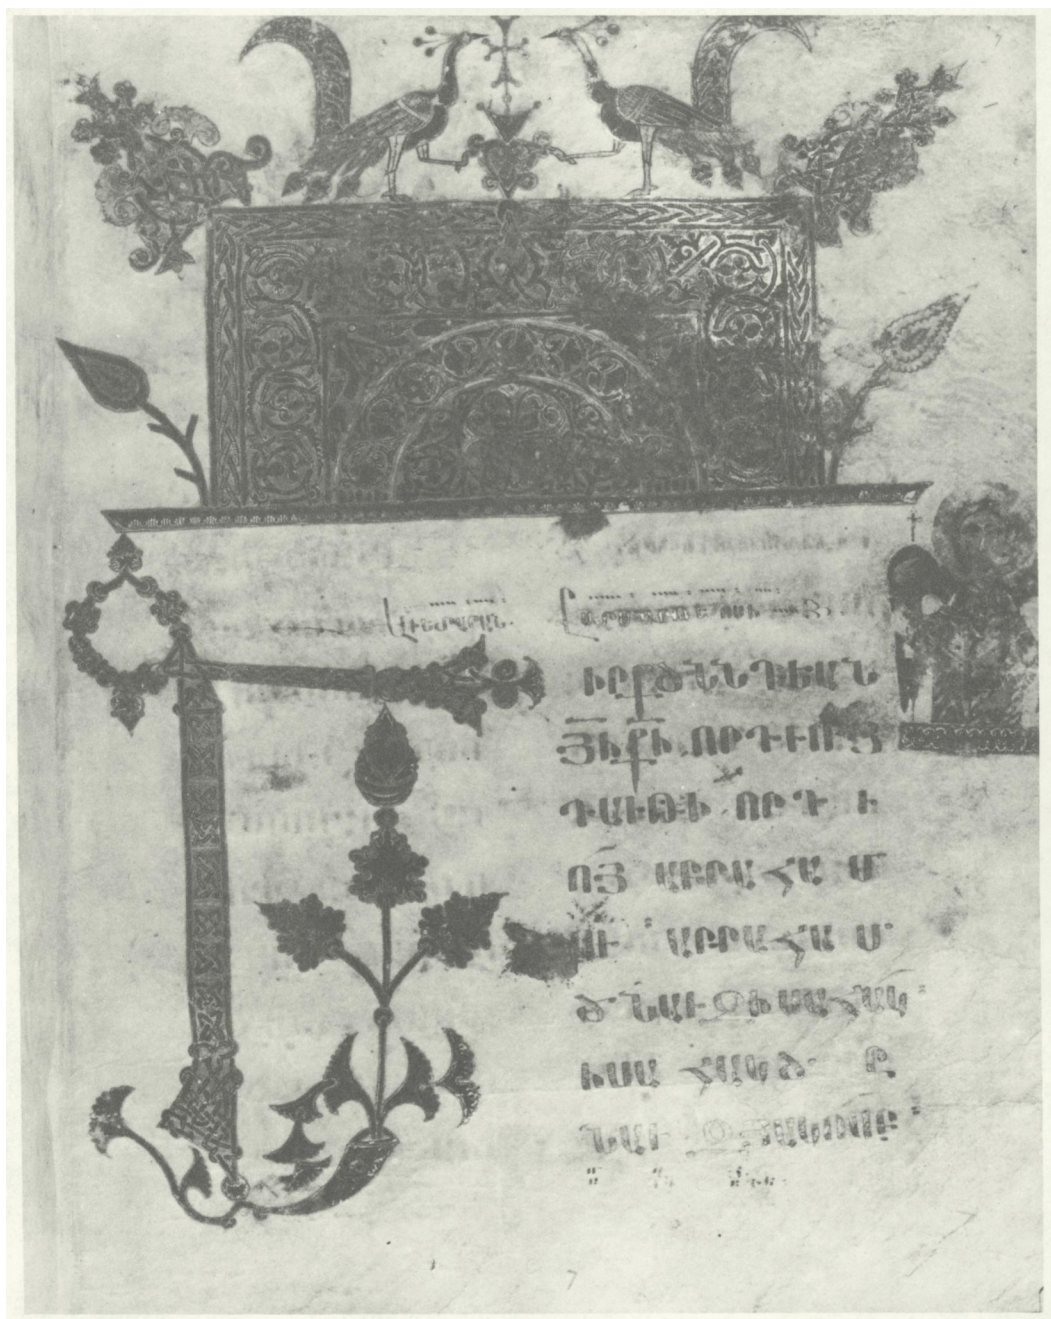 ԳԻՐՔ ԾՆՆԴԵԱՆ
ՅԻ ՔԻ ՈՐԴՒՈՅ
ԴԱՒԹԻ ՈՐԴՒ
ՈՅ ԱԲՐԱՀԱՄ
ՈՒ ԱԲՐԱՀԱՄ
ԾՆԱՒ ԶԻՍԱՀԱԿ
ԻՍԱՀԱԿ Ծ
ՆԱՒ ԶՅԱԿՈՎԲ